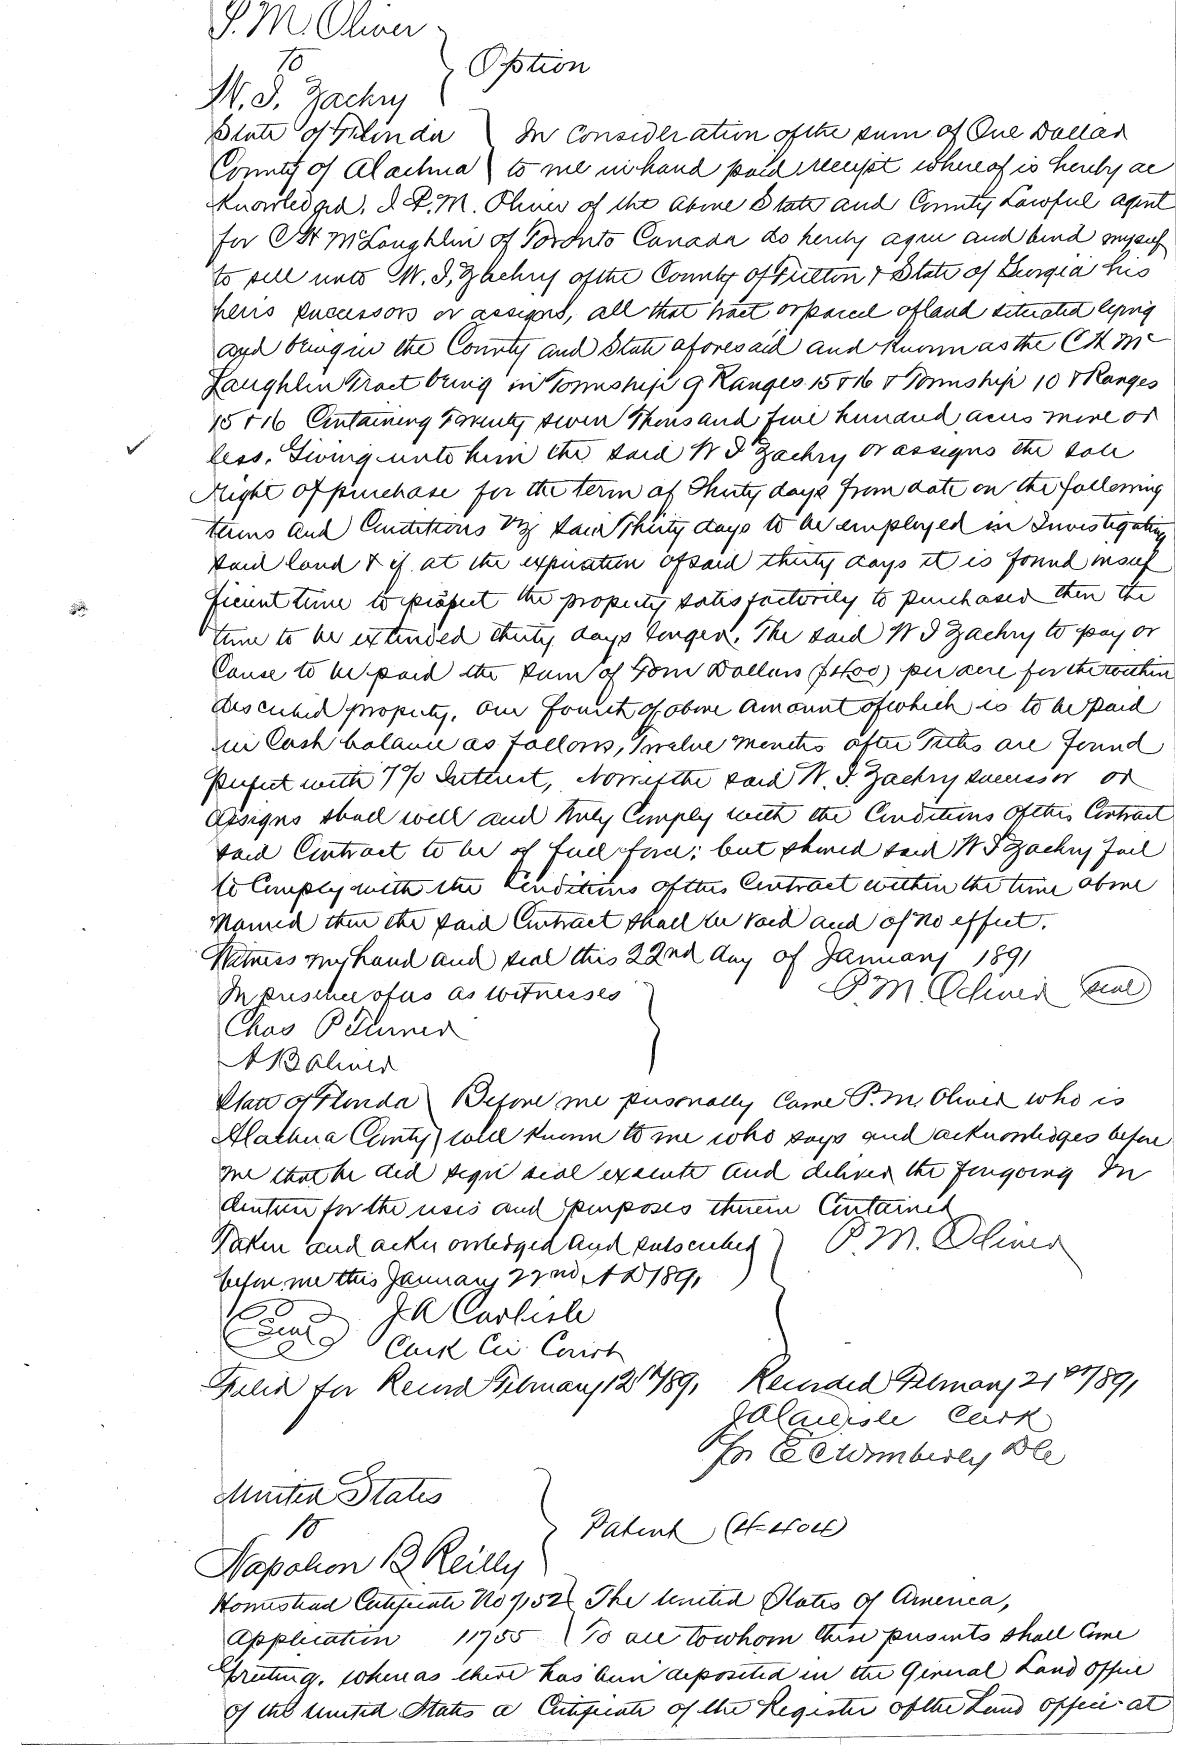 P. M. Oliver
To } Option
W. I. Zachry
State of Florida } In consideration of the sum of One Dollar
County of Alachua } to me in hand paid receipt whereof is hereby ac
knowledged. I P. M. Oliver of the above State and County Lawful agent
for C H McLaughlin of Toronto Canada do hereby agree and bind myself
to sell unto W. I. Zachry of the County of Fulton & State of Georgia his
heirs successors or assigns, all that tract or parcel of land situated lying
and being in the County and State aforesaid and Known as the C H Mc
Laughlin Tract being in Township 9 Ranges 15 & 16 & Township 10 & Ranges
15 & 16 Containing Twenty seven Thousand five hundred acres more or
less. Giving unto him the said W I Zachry or assigns the sole
Right of purchase for the term of Thirty days from date on the following
terms and Conditions Viz said Thirty days to be employed in Investigating
said land & if at the expiration of said thirty days it is found insuf
ficient time to prospect the property satisfactorily to purchased then the
time to be extended thirty days longer. The said W I Zachry to pay or
Cause to be paid the sum of Four Dollars ($4.00) per acre for the within
described property. One fourth of above amount of which is to be paid
in Cash balance as follows, Twelve months after Titles are found
perfect with 7% Interest, Now if the said W. I. Zachry successor or
assigns shall well and truly Comply with the Conditions of this Contract
said Contract to be of full force; but should said W I Zachry fail
to Comply with the Conditions of this Contract within the time above
named then the said Contract shall be void and of no effect.
Witness my hand and seal this 22nd day of January 1891
In presence of us as witnesses } P. M. Oliver (seal)
Chas P Turner
A B Oliver
State of Florida } Before me personally Came P. M. Oliver who is
Alachua County } well Known to me who says and acknowledges before
me that he did sign seal execute and deliver the foregoing In
denture for the uses and purposes therein Contained
Taken and acknowledged and subscribed } P. M. Oliver
before me this January 22nd A D 1891
J. A. Carlisle
(Seal) Clerk Cir Court
Filed for Record February 12th/891 Recorded February 21st/891
J A Carlisle Clerk
for E C Wimberly D C
United States
To } Patent (4-404)
Napoleon B Reilly
Homestead Certificate No 7152 } The United States of America,
Application 11755 } To all to whom these presents shall Come
Greeting. whereas there has been deposited in the General Land office
of the United States a Certificate of the Register of the Land office at